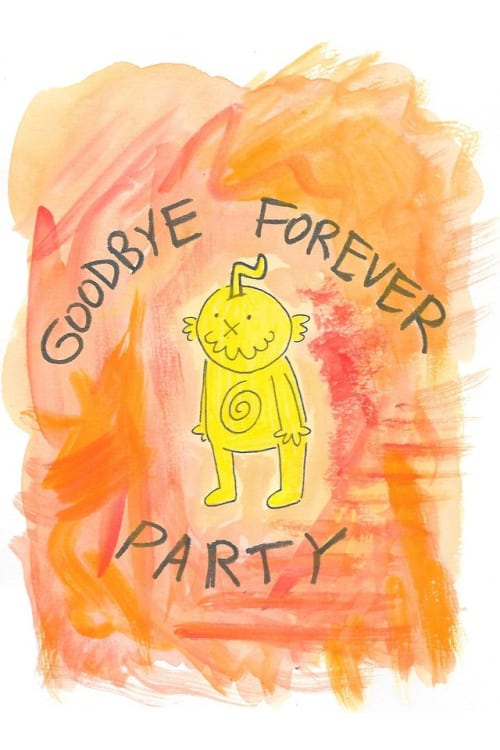 GOODBYE FOREVER
PARTY